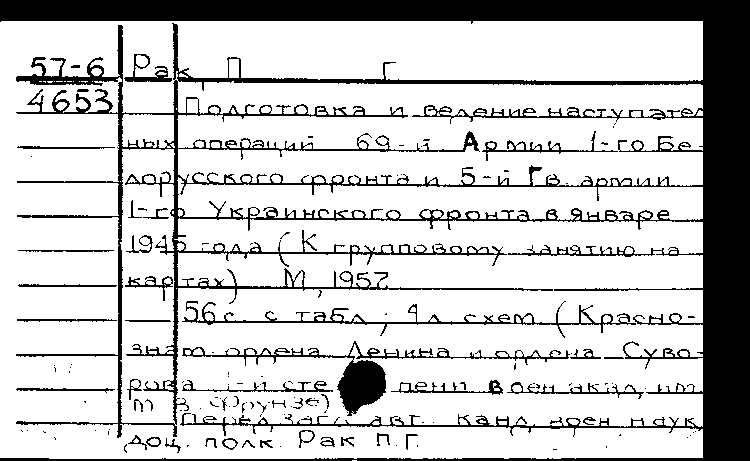 57-6 Рак, П Г
4653 Подготовка и ведение наступател
ных операций 69-й Армии 1-го Бе-
лорусского фронта и 5-й Гв. армии
1-го Украинского фронта в январе
1945 года (К групповому занятию на
картах) М, 1957
56 с. с табл; 4 л схем (Красно-
знам ордена Ленина и ордена Суво-
рова 1-й степени воен акад им
М В Фрунзе)
Перед загл авт. канд воен наук,
доц. полк. Рак П.Г.